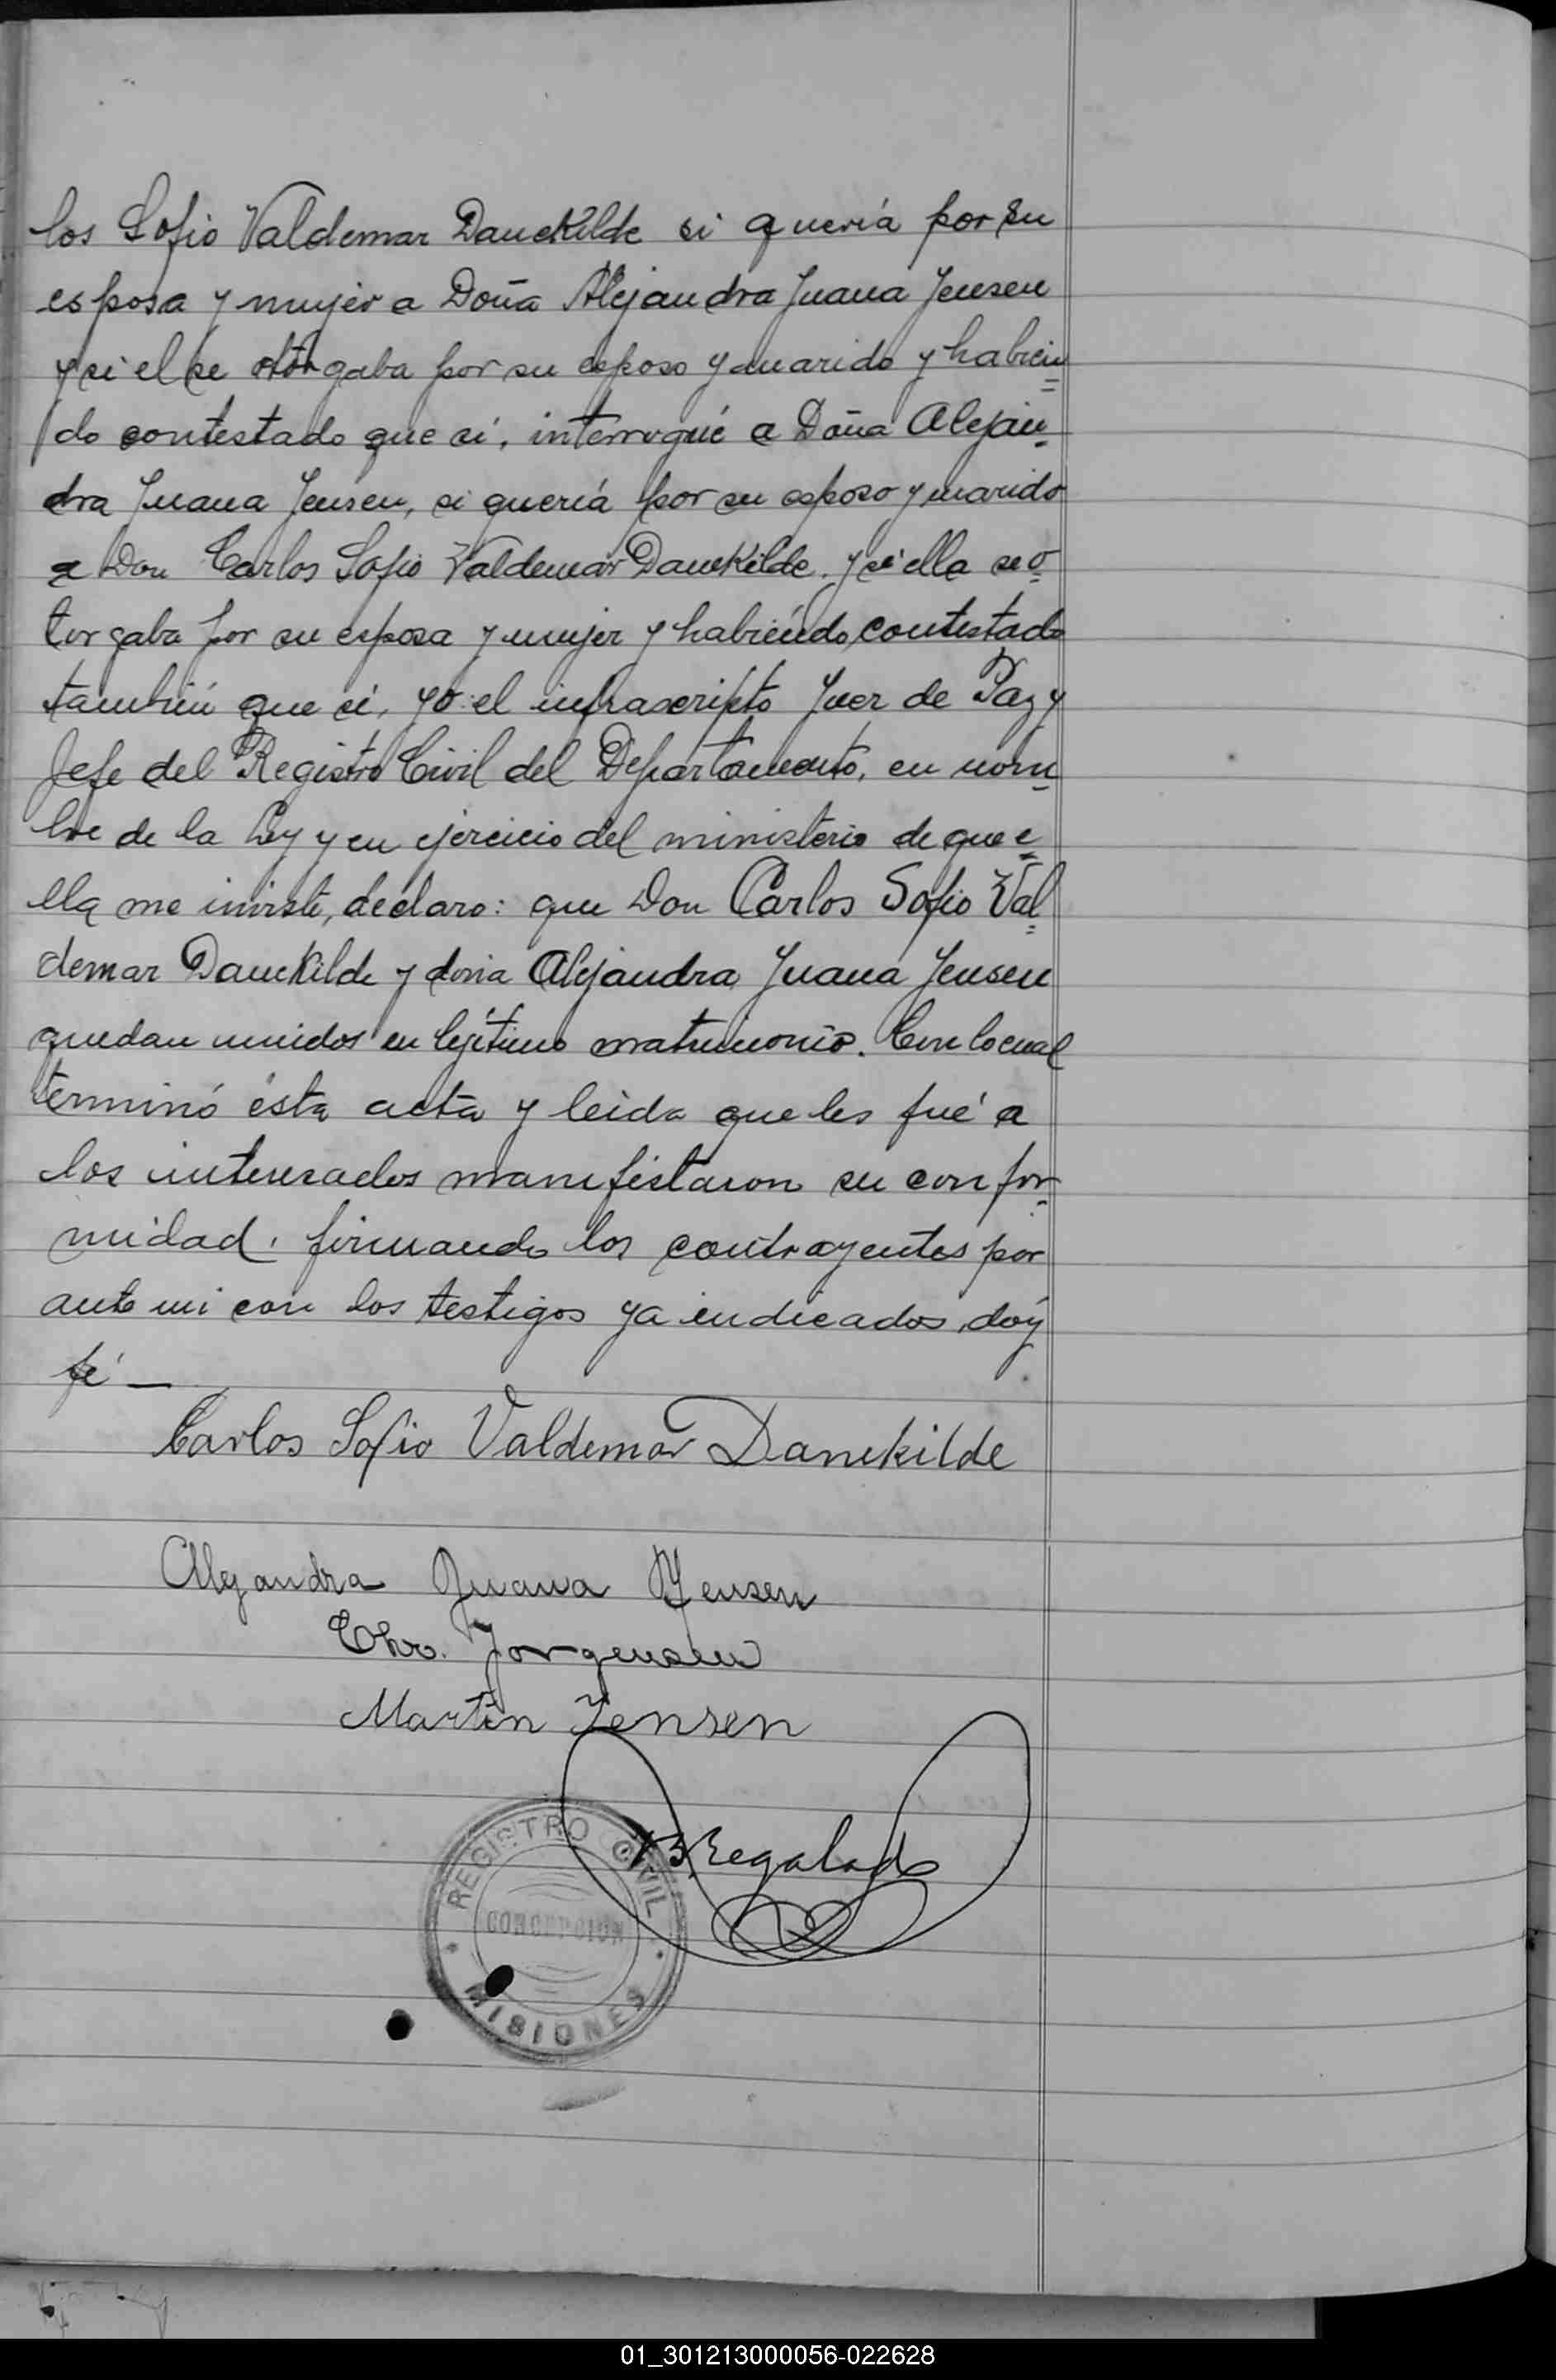 los Sofio Valdemar Danekilde si quería por su
esposa y mujer a Doña Alejandra Juana Jensen
y si el se otorgaba por su esposo y marido y habien=
do contestado que si, interrogué a Doña Alejan-
dra Juana Jensen, si quería por su esposo y marido
a Don Carlos Sofio Valdemar Danekilde y si ella se o=
torgaba por su esposa y mujer y habiendo contestado
también que si, yo el infrascripto Juez de Paz y
Jefe del Registro Civil del Departamento, en nom-
bre de la Ley y en ejercicio del ministerio de que e=
lla me inviste, declaro: que Don Carlos Sofio Val=
demar Danekilde y doña Alejandra Juana Jensen
quedan unidos en legítimo matrimonio. Con lo cual
terminó ésta acta y leida que les fué a
los interesados manifestaron su confor-
midad, firmando los contrayentes por
ante mi con los testigos ya indicados, doy
fé —
Carlos Sofio Valdemar Danekilde
Alejandra Juana Jensen
Chr. Jorgensen
Martin Jensen
Regalado
REGISTRO CIVIL
CONCEPCION
MISIONES
01_301213000056-022628